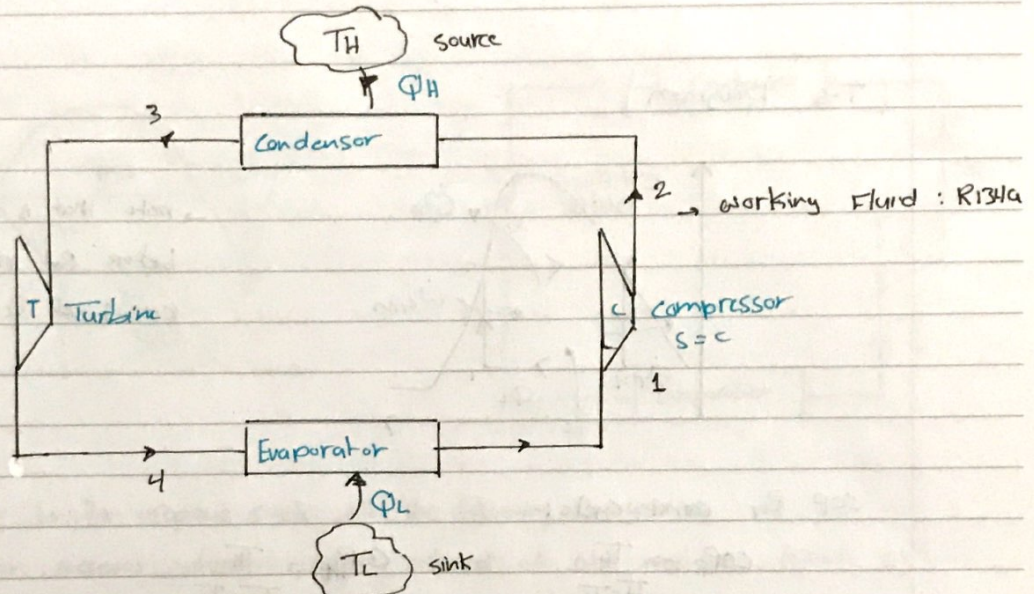 TH source
QH
3
Condensor
2
→ working Fluid : R134a
T Turbine
C compressor
S = C
1
Evaporator
4
QL
TL sink